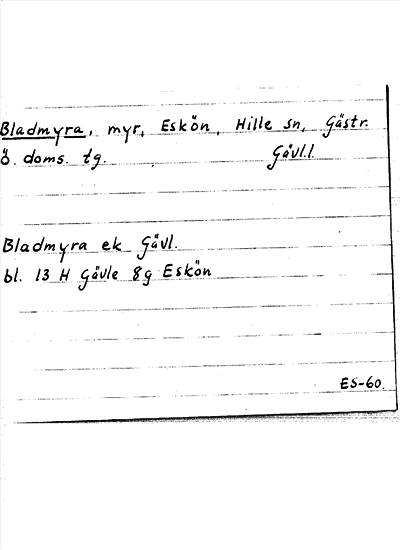 Bladmyra, myr, Eskön, Hille sn, Gästr.
ö. doms. tg. Gävl.l.
Bladmyra ek Gävl.
bl. 13 H Gävle 8g Eskön
ES-60